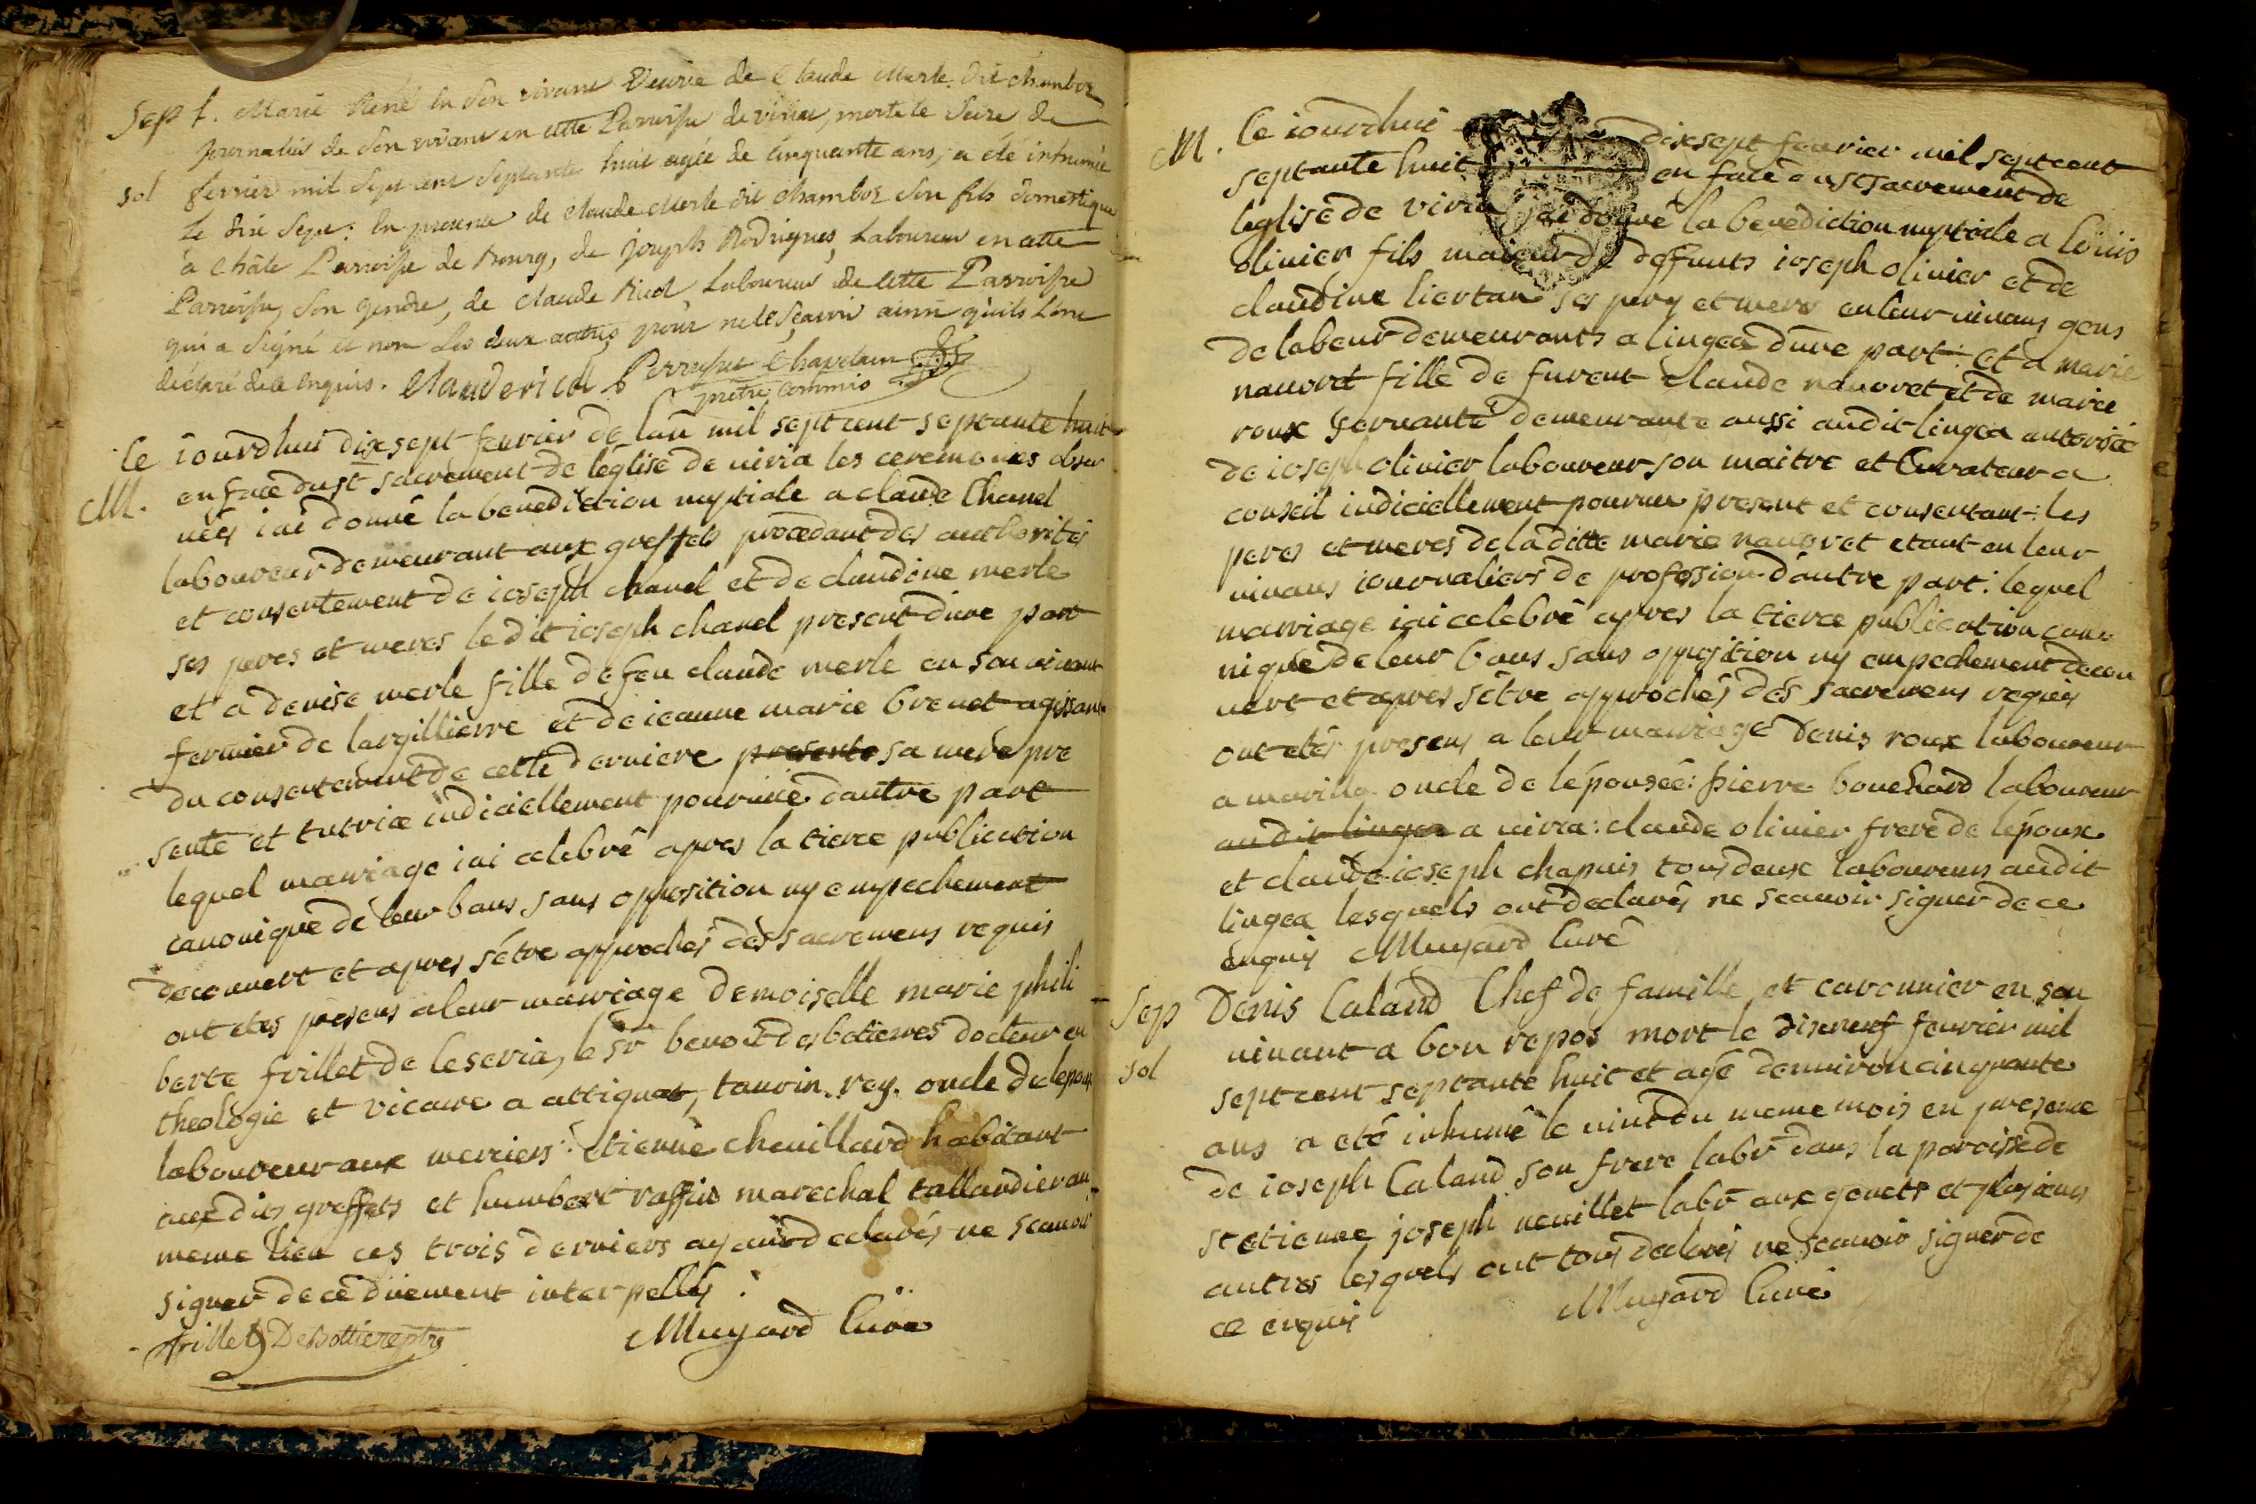 Sep t. Marie René en son vivant Veuve de Claude Merle dit chambor
journalier de son vivant en cette Parroisse de viria, morte le seize de
sol fevrier mil sept cent septante huit agée de cinquante ans, a été inhumée
le dix sept: en presence de Claude Merle dit Chambor son fils domestique
a Châte Parroisse de Bourg, de joseph Rodrigues Laboureur en cette
Parroisse, son gendre, de Claude Ricol Laboureur de cette Parroisse
qui a signé et non les deux autres pour ne le sçavoir ainsi qu'ils l'ont
déclaré de ce enquis. Claude ricol Perruset Chapelain
prêtre commis
Ce iourdhui dix sept feurier de lan mil septcent septante huit
M. en face du st sacrement de leglise de uiria les ceremonies obser
uées iai donné la benediction nuptiale a claude Chanel
laboureur demeurant aux greffets procedant des authorités
et consentement de ioseph chanel et de claudine merle
ses peres et meres le dit ioseph chanel present dune part
et a denise merle fille de feu claude merle en son uiuant
fermier de largillierre et de ieanne marie brenet agissante
du consentement de cette derniere presente sa mere pre
sente et tutrice iudiciellement pouruue dautre part
lequel mariage iai celebré apres la tierce publication
canonique de leur bans sans opposition ny empechement
decouuert et apres sétre approchés des sacremens requis
ont etes presens a leur mariage demoiselle marie phili
berte frillet de leseria, le sr benoit desbotierres docteur en
theologie et vicaire a attignat, taurin rey oncle de lepoux
laboureur aux merciers: étienne cheuillard habitant
aux dits greffets et humbert raffin marechal tallandier au
meme lieu ces trois derniers ayant declarés ne scauoir
signer de ce duement interpellés.
frillet Desbottiere ptre Muyard Curé
M. Ce iourdhui dixsept feurier mil septcent
septante huit en face du st sacrement de
leglise de viria iai donné la benediction nuptiale a louis
oliuier fils maieur de defunts ioseph oliuier et de
claudine liertan ses pere et mere en leur uiuans gens
de labeur demeurants a lingea dune part: et a marie
nauoret fille de furent claude nauoret et de marie
roux seruante demeurante aussi audit lingea autorisée
de ioseph oliuier laboureur son maitre et Curateur a
conseil iudiciellement pouruu present et consentant: les
peres et meres de la ditte marie nauoret etant en leur
uiuans iournaliers de profession dautre part: lequel
marriage iai celebré apres la tierce publication cano
nique de leur bans sans opposition ny empechement decou
uert et apres sétre approchés des sacremens requis
ont etés presens a leur mariage denis roux laboureur
a marilla oncle de lépousée: pierre bouchard laboureur
au dit lingea a uiria: claude oliuier frere de lépoux
et claude ioseph chapuis tous deux laboureurs audit
lingea lesquels ont declarés ne scauoir signer de ce
enquis Muyard Curé
Sep Denis Caland Chef de famille et caronnier en son
uiuant a bon repos mort le dixneuf feurier mil
sol septcent septante huit et agé denuiron cinquante
ans a eté inhumé le uint du meme mois en presence
de ioseph Caland son frere labr dans la paroisse de
st etienne joseph neuillet labr aux genets et plusieurs
autres lesquels ont tous declarés ne scauoir signer de
ce enquis Muyard Curé